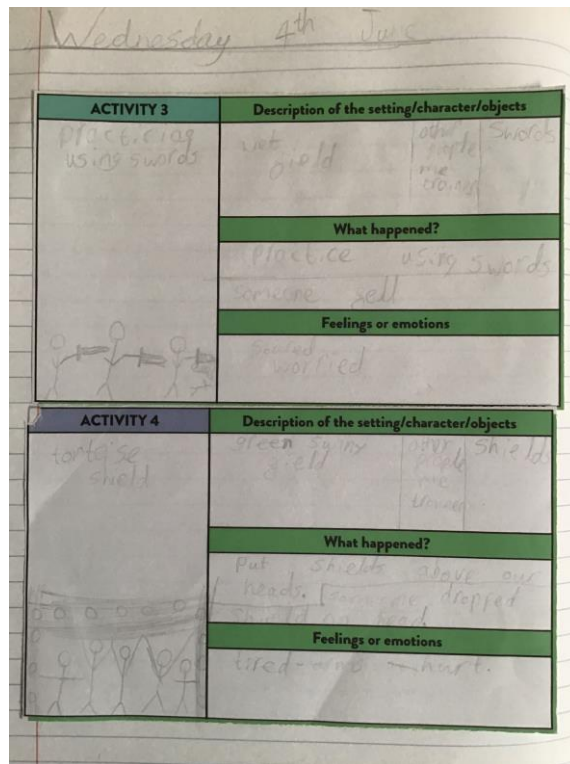 Wednesday 4th June
ACTIVITY 3
practicing
using swords
Description of the setting/character/objects
wet
gield
other
people
me
Swords
What happened?
practice using swords
someone sell
Feelings or emotions
scared
worried
ACTIVITY 4
tortoise
shield
Description of the setting/character/objects
green
gield
other
people
me
Shields
What happened?
put shields above our
heads. someone dropped
shield on head.
Feelings or emotions
tired - arms hurt.